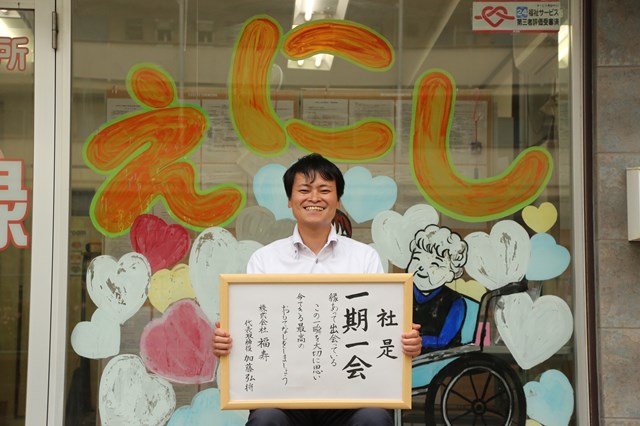 えにし
福祉サービス
第三者評価受審済
所
緑
社是
一期一会
縁あって出会っている
この一瞬を大切に思い
今できる最高の
おもてなしをしましょう
株式会社 福寿
代表取締役 加藤弘将